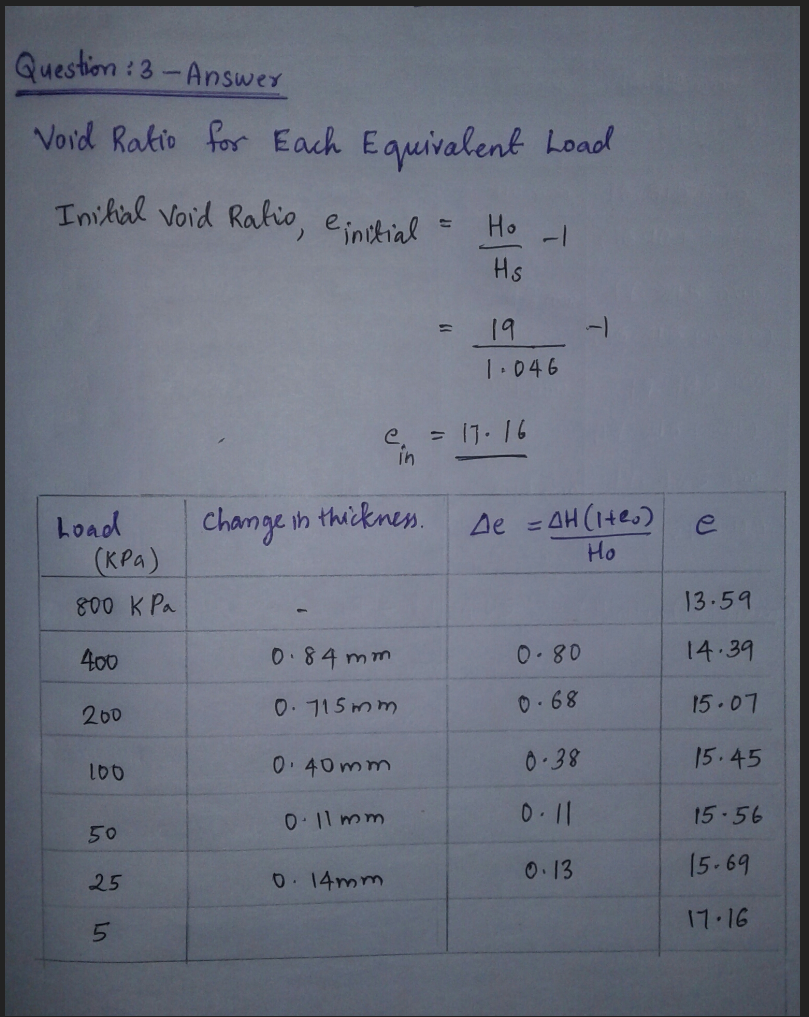 Question : 3 - Answer
Void Ratio for Each Equivalent Load
Initial Void Ratio, e initial = Ho / Hs - 1
= 19 / 1.046 - 1
e in = 17.16
Load (KPa) | Change in thickness. | Δe = ΔH(1+e₀) / Ho | e
800 KPa | - | | 13.59
400 | 0.84 mm | 0.80 | 14.39
200 | 0.715 mm | 0.68 | 15.07
100 | 0.40 mm | 0.38 | 15.45
50 | 0.11 mm | 0.11 | 15.56
25 | 0.14 mm | 0.13 | 15.69
5 | | | 17.16